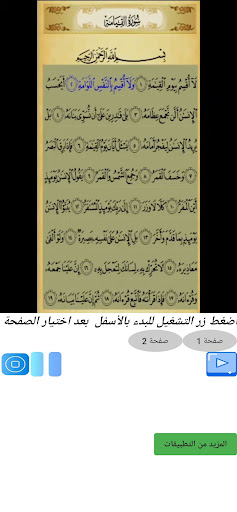 سُورَةُ القِيَامَةِ
بِسْمِ اللَّهِ الرَّحْمَٰنِ الرَّحِيمِ
لَآ أُقْسِمُ بِيَوْمِ ٱلْقِيَٰمَةِ ١ وَلَآ أُقْسِمُ بِٱلنَّفْسِ ٱللَّوَّامَةِ ٢ أَيَحْسَبُ
ٱلْإِنسَٰنُ أَلَّن نَّجْمَعَ عِظَامَهُۥ ٣ بَلَىٰ قَٰدِرِينَ عَلَىٰٓ أَن نُّسَوِّىَ بَنَانَهُۥ ٤ بَلْ
يُرِيدُ ٱلْإِنسَٰنُ لِيَفْجُرَ أَمَامَهُۥ ٥ يَسْـَٔلُ أَيَّانَ يَوْمُ ٱلْقِيَٰمَةِ ٦ فَإِذَا بَرِقَ ٱلْبَصَرُ
٧ وَخَسَفَ ٱلْقَمَرُ ٨ وَجُمِعَ ٱلشَّمْسُ وَٱلْقَمَرُ ٩ يَقُولُ ٱلْإِنسَٰنُ يَوْمَئِذٍ
أَيْنَ ٱلْمَفَرُّ ١٠ كَلَّا لَا وَزَرَ ١١ إِلَىٰ رَبِّكَ يَوْمَئِذٍ ٱلْمُسْتَقَرُّ ١٢ يُنَبَّؤُا۟ ٱلْإِنسَٰنُ
يَوْمَئِذٍۭ بِمَا قَدَّمَ وَأَخَّرَ ١٣ بَلِ ٱلْإِنسَٰنُ عَلَىٰ نَفْسِهِۦ بَصِيرَةٌ ١٤ وَلَوْ أَلْقَىٰ
مَعَاذِيرَهُۥ ١٥ لَا تُحَرِّكْ بِهِۦ لِسَانَكَ لِتَعْجَلَ بِهِۦٓ ١٦ إِنَّ عَلَيْنَا جَمْعَهُۥ
وَقُرْءَانَهُۥ ١٧ فَإِذَا قَرَأْنَٰهُ فَٱتَّبِعْ قُرْءَانَهُۥ ١٨ ثُمَّ إِنَّ عَلَيْنَا بَيَانَهُۥ ١٩
اضغط زر التشغيل للبدء بالأسفل بعد اختيار الصفحة
صفحة 1
صفحة 2
المزيد من التطبيقات